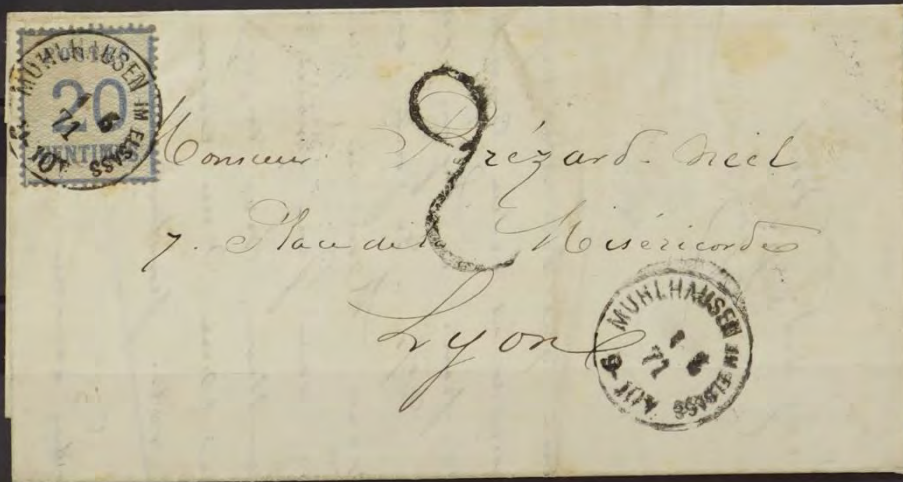 MÜHLHAUSEN IM ELSASS
1 6
71
20
CENTIMES
2
Monsieur Prézard-Néel
7. Place de la Miséricorde
Lyon
MÜHLHAUSEN IM ELSASS
1 6
71